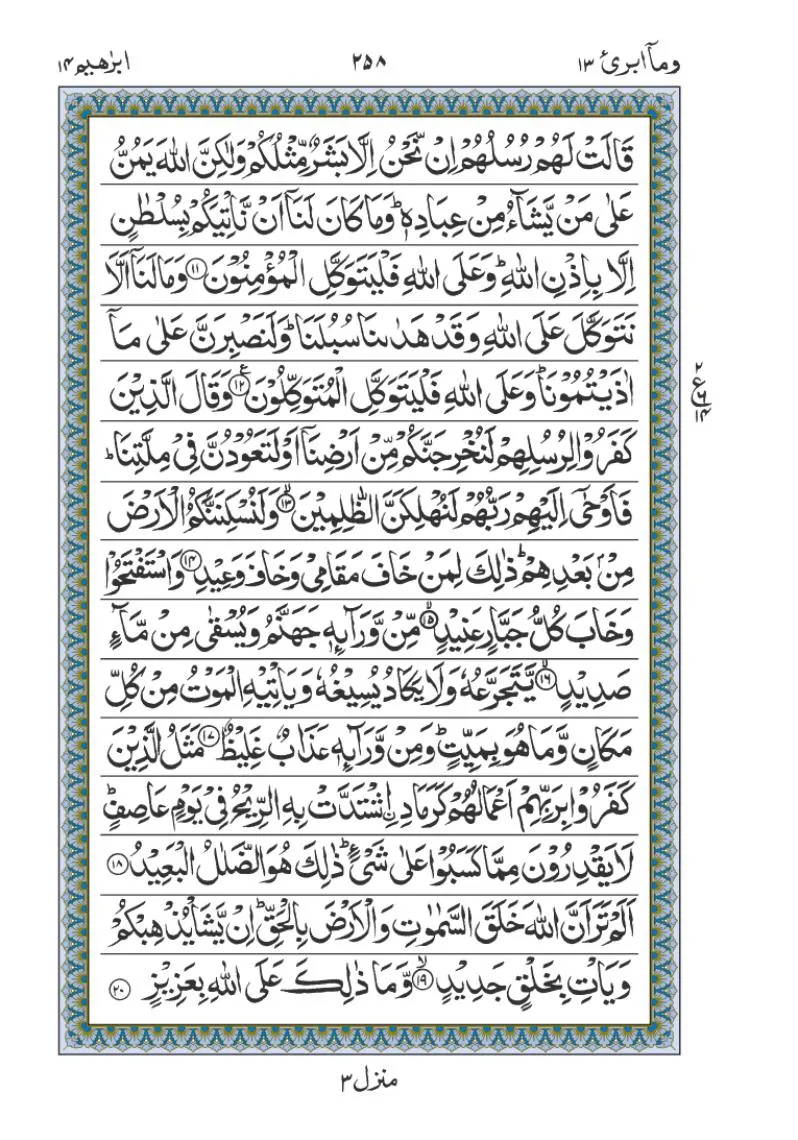 وماۤ ابرئ ١٣ ٢٥٨ ابرٰهيم ١٤
قَالَتْ لَهُمْ رُسُلُهُمْ اِنْ نَّحْنُ اِلَّا بَشَرٌ مِّثْلُكُمْ وَلٰكِنَّ اللّٰهَ يَمُنُّ
عَلٰى مَنْ يَّشَآءُ مِنْ عِبَادِهٖؕ وَمَا كَانَ لَنَاۤ اَنْ نَّاْتِيَكُمْ بِسُلْطٰنٍ
اِلَّا بِاِذْنِ اللّٰهِؕ وَعَلَى اللّٰهِ فَلْيَتَوَكَّلِ الْمُؤْمِنُوْنَ ۝١١ وَمَا لَنَاۤ اَلَّا
نَتَوَكَّلَ عَلَى اللّٰهِ وَقَدْ هَدٰىنَا سُبُلَنَاؕ وَلَنَصْبِرَنَّ عَلٰى مَاۤ
اٰذَيْتُمُوْنَاؕ وَعَلَى اللّٰهِ فَلْيَتَوَكَّلِ الْمُتَوَكِّلُوْنَ ۝١٢ وَقَالَ الَّذِيْنَ
٢
ع
٦
١٤
كَفَرُوْا لِرُسُلِهِمْ لَنُخْرِجَنَّكُمْ مِّنْ اَرْضِنَاۤ اَوْ لَتَعُوْدُنَّ فِيْ مِلَّتِنَاؕ
فَاَوْحٰۤى اِلَيْهِمْ رَبُّهُمْ لَنُهْلِكَنَّ الظّٰلِمِيْنَ ۝١٣ وَلَنُسْكِنَنَّكُمُ الْاَرْضَ
مِنْۢ بَعْدِهِمْؕ ذٰلِكَ لِمَنْ خَافَ مَقَامِيْ وَخَافَ وَعِيْدِ ۝١٤ وَاسْتَفْتَحُوْا
وَخَابَ كُلُّ جَبَّارٍ عَنِيْدٍ ۝١٥ مِّنْ وَّرَآىِٕهٖ جَهَنَّمُ وَيُسْقٰى مِنْ مَّآءٍ
صَدِيْدٍ ۝١٦ يَّتَجَرَّعُهٗ وَلَا يَكَادُ يُسِيْغُهٗ وَيَاْتِيْهِ الْمَوْتُ مِنْ كُلِّ
مَكَانٍ وَّمَا هُوَ بِمَيِّتٍؕ وَمِنْ وَّرَآىِٕهٖ عَذَابٌ غَلِيْظٌ ۝١٧ مَثَلُ الَّذِيْنَ
كَفَرُوْا بِرَبِّهِمْ اَعْمَالُهُمْ كَرَمَادِ ِۨاشْتَدَّتْ بِهِ الرِّيْحُ فِيْ يَوْمٍ عَاصِفٍؕ
لَا يَقْدِرُوْنَ مِمَّا كَسَبُوْا عَلٰى شَيْءٍؕ ذٰلِكَ هُوَ الضَّلٰلُ الْبَعِيْدُ ۝١٨
اَلَمْ تَرَ اَنَّ اللّٰهَ خَلَقَ السَّمٰوٰتِ وَالْاَرْضَ بِالْحَقِّؕ اِنْ يَّشَاْ يُذْهِبْكُمْ
وَيَاْتِ بِخَلْقٍ جَدِيْدٍ ۝١٩ وَّمَا ذٰلِكَ عَلَى اللّٰهِ بِعَزِيْزٍ ۝٢٠
منزل ٣